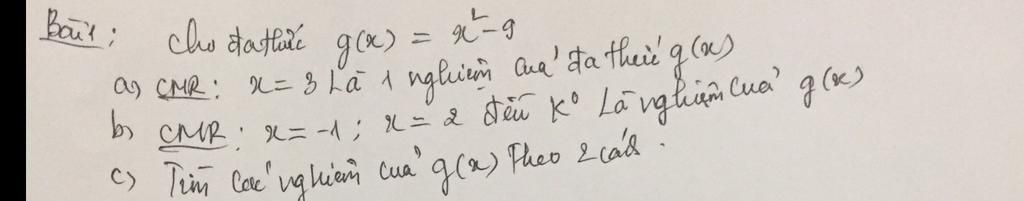 Bài 1: Cho đa thức g(x) = x² - 9
a) CMR: x = 3 Là 1 nghiệm của đa thức g(x)
b) CMR: x = -1; x = 2 đều K° Là nghiệm của g(x)
c) Tìm các nghiệm của g(x) Theo 2 cách.